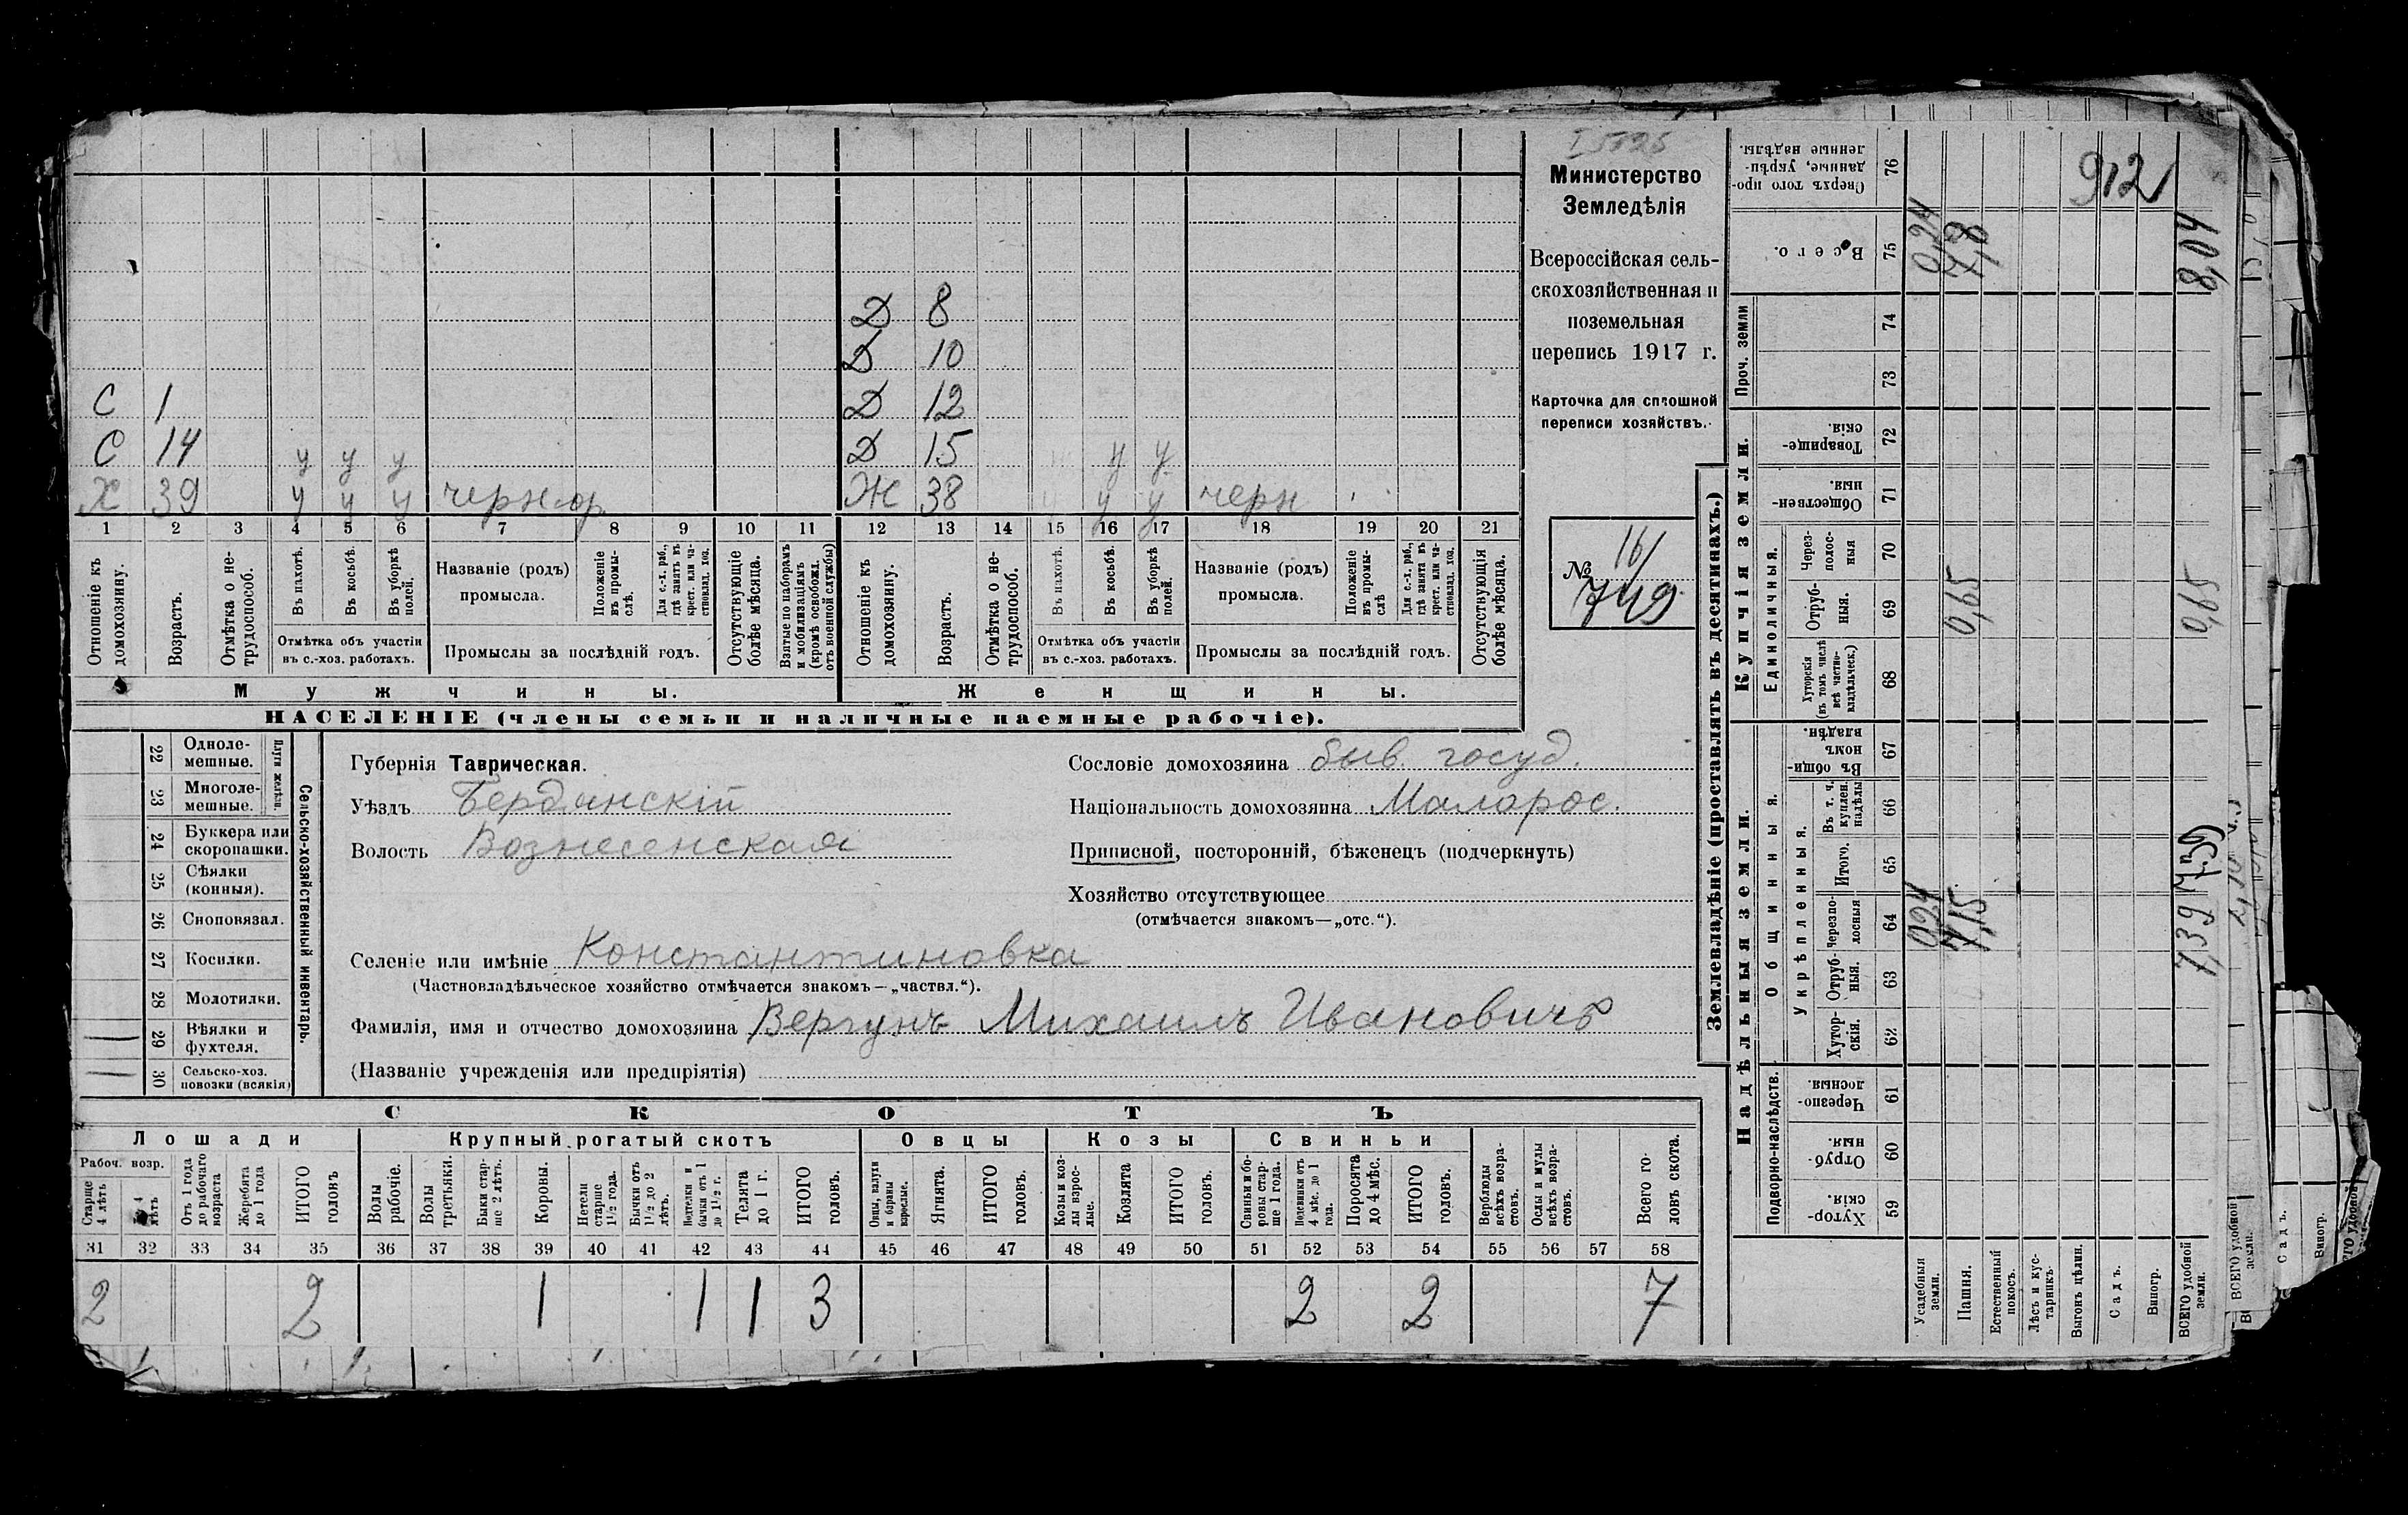 Д 8
Д 10
С 1 Д 12
С 14 у у у Д 15 у у
Х 39 у у у Ж 38 у у черн
1 2 3 4 5 6 7 8 9 10 11 12 13 14 15 16 17 18 19 20 21
Отношеніе къ домохозяину.
Возрастъ.
Отмѣтка о нетрудоспособ.
Въ пахотѣ.
Въ косьбѣ.
Въ уборкѣ полей.
Отмѣтка объ участіи въ с.-хоз. работахъ.
Названіе (родъ) промысла.
Положеніе въ промыслѣ.
Для с.-х. раб., гдѣ занятъ въ крест. или частновлад. хоз.
Промыслы за послѣдній годъ.
Отсутствующіе болѣе мѣсяца.
Взятые по наборамъ и мобилизаціямъ (кромѣ освобожд. отъ военной службы)
Отношеніе къ домохозяину.
Возрастъ.
Отмѣтка о нетрудоспособ.
Въ пахотѣ.
Въ косьбѣ.
Въ уборкѣ полей.
Отмѣтка объ участіи въ с.-хоз. работахъ.
Названіе (родъ) промысла.
Положеніе въ промыслѣ
Для с.-х. раб., гдѣ занята въ крест. или частновлад. хоз.
Промыслы за послѣдній годъ.
Отсутствующія болѣе мѣсяца.
Мужчины. Женщины.
НАСЕЛЕНІЕ (члены семьи и наличные наемные рабочіе).
Министерство
Земледѣлія
Всероссійская сель-
скохозяйственная и
поземельная
перепись 1917 г.
Карточка для сплошной
переписи хозяйствъ.
16/
№ 749
Сельско-хозяйственный инвентарь.
Плуги желѣзн.
22 Одноле-
мешные.
23 Многоле-
мешные.
24 Буккера или
скоропашки.
25 Сѣялки
(конныя).
26 Сноповязал.
27 Косилки.
28 Молотилки.
29 Вѣялки и
фухтеля.
30 Сельско-хоз.
повозки (всякія)
Губернія Таврическая.
Уѣздъ Бердянскій
Волость Вознесенская
Сословіе домохозяина быв. госуд.
Національность домохозяина Малорос.
Приписной, посторонній, бѣженецъ (подчеркнуть)
Хозяйство отсутствующее
(отмѣчается знакомъ—„отс.“).
Селеніе или имѣніе Константиновка
(Частновладѣльческое хозяйство отмѣчается знакомъ—„частвл.“).
Фамилія, имя и отчество домохозяина Вергунъ Михаилъ Ивановичъ
(Названіе учрежденія или предпріятія)
СКОТЪ
Лошади Крупный рогатый скотъ Овцы Козы Свиньи
Рабоч. возр.
Старше 4 лѣтъ
4 лѣтъ
Отъ 1 года до рабочаго возраста
Жеребята до 1 года
ИТОГО головъ
Волы рабочіе.
Волы третьяки.
Быки старше 2 лѣтъ.
Коровы.
Нетели старше 1½ года.
Бычки отъ 1½ до 2 лѣтъ.
Подтелки и бычки отъ 1 до 1½ г.
Телята до 1 г.
ИТОГО головъ.
Овцы, валухи и бараны взрослые.
Ягнята.
ИТОГО головъ.
Козы и козлы взрослые.
Козлята
ИТОГО головъ.
Свиньи и боровы старше 1 года.
Подсвинки отъ 4 мѣс. до 1 года.
Поросята до 4 мѣс.
ИТОГО головъ.
Верблюды всѣхъ возрастовъ.
Ослы и мулы всѣхъ возрастовъ.
Всего головъ скота.
31 32 33 34 35 36 37 38 39 40 41 42 43 44 45 46 47 48 49 50 51 52 53 54 55 56 57 58
2 2 1 1 1 3 2 2 7
Землевладѣніе (проставлять въ десятинахъ.)
Надѣльныя земли. Купчія земли. Проч. земли
Подворно-наслѣдств. Общинныя. Единоличныя.
Укрѣпленныя.
59 Хуторскія.
60 Отрубныя.
61 Черезполосныя.
62 Хуторскія.
63 Отрубныя.
64 Черезполосныя
65 Итого.
66 Въ т. ч. куплен. надѣлы
67 Въ общинномъ владѣн.
68 Хуторскія (въ томъ числѣ всѣ частновладѣльческ.)
69 Отрубныя.
70 Черезполосныя
71 Общественныя
72 Товарищескія.
73
74
75 Всего.
76 Сверхъ того проданные, укрѣпленные надѣлы.
Усадебныя земли. 0,24 0,24
Пашня. 7,15 0,65 7,8
Естественный покосъ.
Лѣсъ и кустарникъ.
Выгонъ цѣлин.
Садъ.
Виногр.
ВСЕГО удобной земли. 7,39 7,39 0,65 8,04
912
ВСЕГО удобной земли.
Садъ.
Виногр.